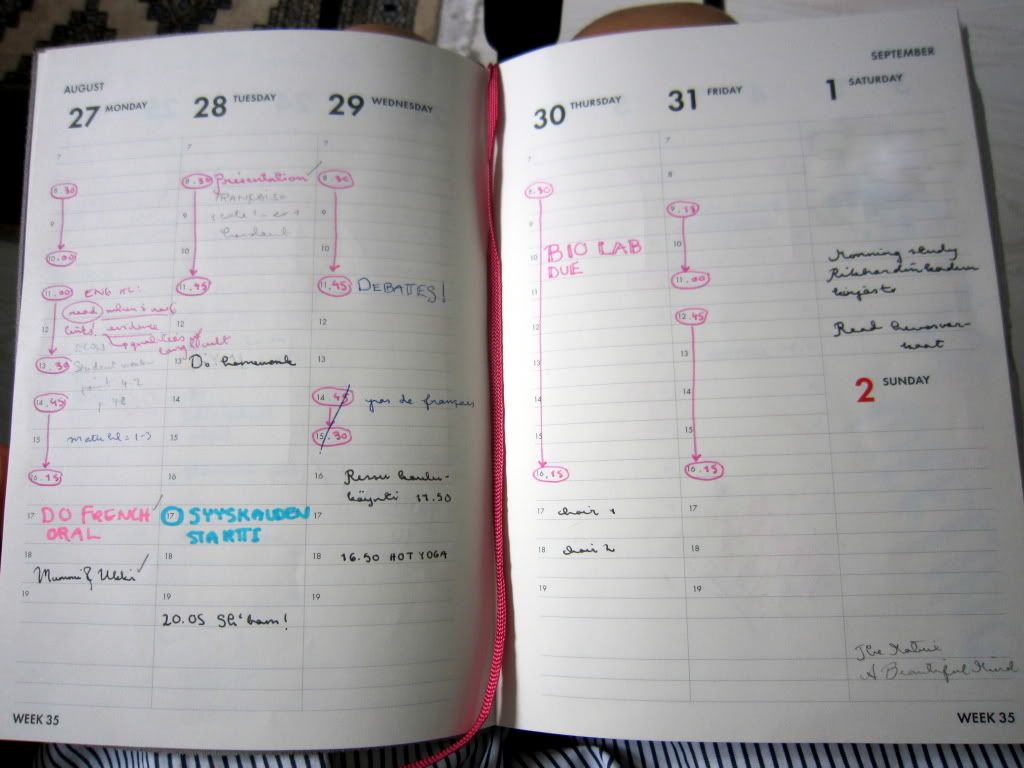 AUGUST
27 MONDAY
7
8.30
9
10.00
11.00 ENG HL:
read
12 evidence
12.30 Student
14.45
15 math hl = 1-3
16.15
17 DO FRENCH
ORAL
18
Mummi & Ukki
19
28 TUESDAY
7
8.30 présentation
FRANÇAISE
9
10
11.45
12
13 Do homework
14
15
16
17 SYYSKAUDEN
STARTTI
18
19
20.05
29 WEDNESDAY
7
8.30
9
10
11.45 DEBATES!
12
13
14.45 pas de français
15.30
16 Ressu koulu-
käynti 17.50
17
18 16.50 HOT YOGA
19
WEEK 35
SEPTEMBER
30 THURSDAY
7
8.30
9
10 BIO LAB
DUE
11
12
13
14
15
16.15
17 choir 1
18 choir 2
19
31 FRIDAY
7
8
9.15
10
11.00
12.45
13
14
15
16.15
17
18
19
1 SATURDAY
Morning study
Rikhardinkadun
Read
2 SUNDAY
The Matrix
A Beautiful Mind
WEEK 35